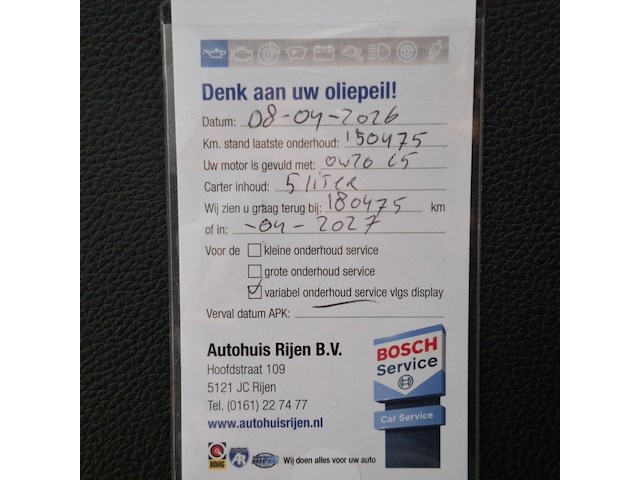 Denk aan uw oliepeil!
Datum: 08-04-2026
Km. stand laatste onderhoud: 150475
Uw motor is gevuld met: 0W20 C5
Carter inhoud: 5 liter
Wij zien u graag terug bij: 180475 km
of in: -04-2027
Voor de kleine onderhoud service
grote onderhoud service
variabel onderhoud service vlgs display
Verval datum APK:
Autohuis Rijen B.V.
Hoofdstraat 109
5121 JC Rijen
Tel. (0161) 22 74 77
www.autohuisrijen.nl
BOSCH
Service
Car Service
BOVAG
AR
Wij doen alles voor uw auto